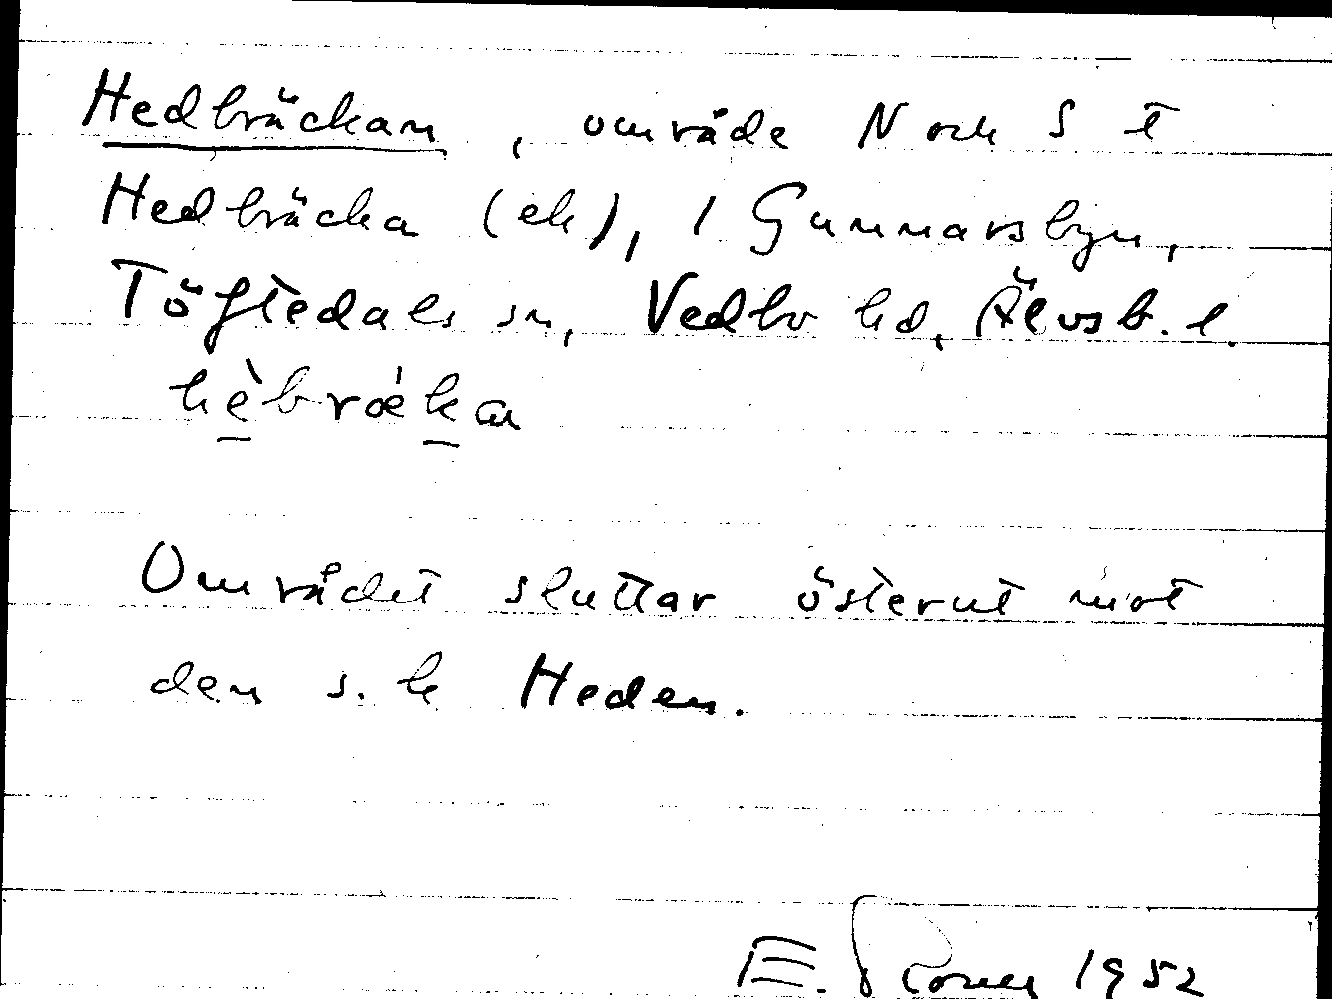 Hedbräckan, område N och S t
Hedbräcka (ek), 1 Gunnarsbyn,
Töftedals sn, Vedbo hd, Älvsb. l.
hèbrǽkan
Området sluttar österut mot
den s. k Heden.
E. 1952